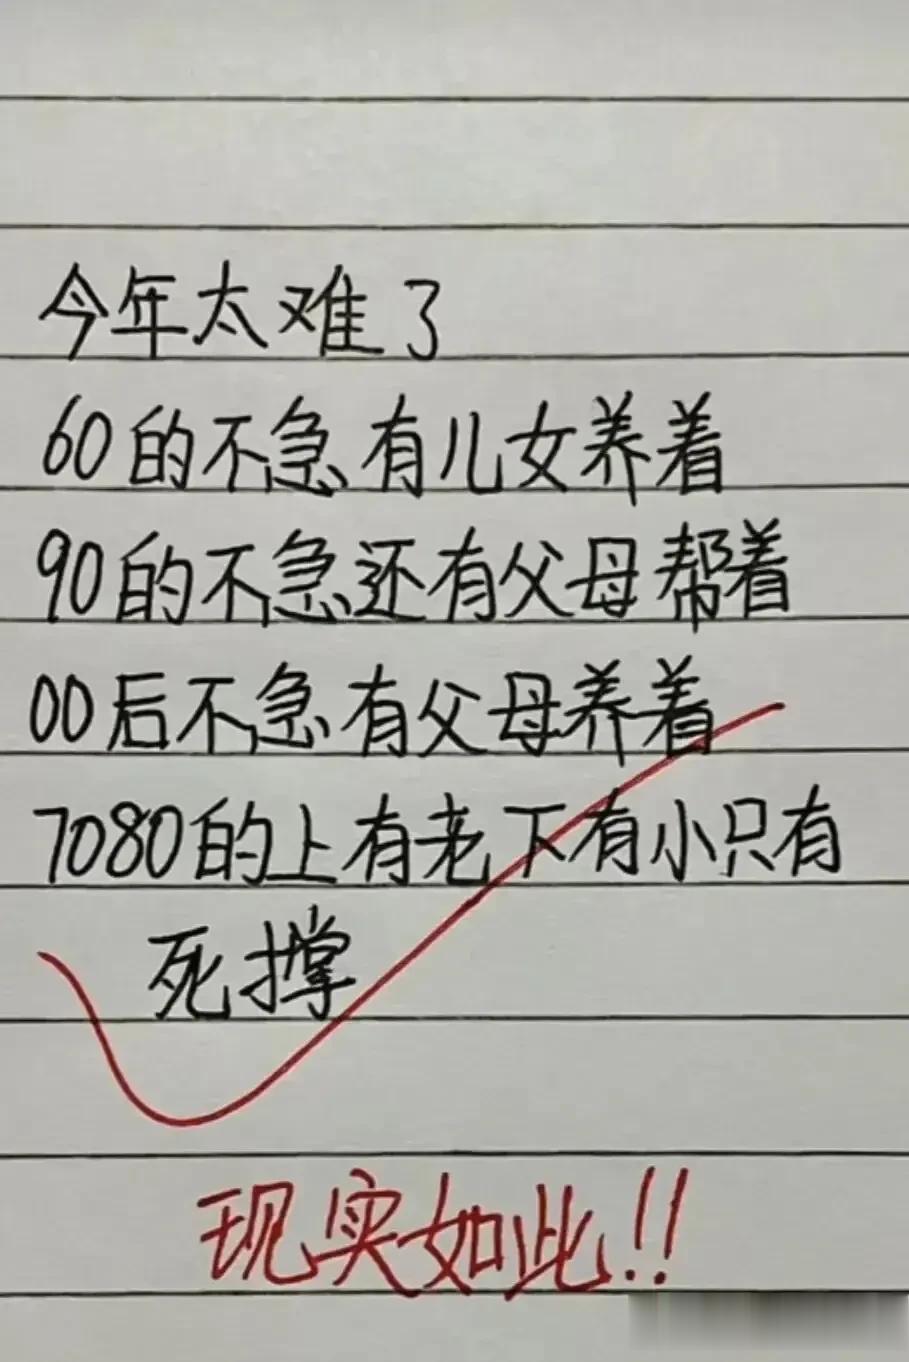 今年太难了
60的不急有儿女养着
90的不急还有父母帮着
00后不急有父母养着
7080的上有老下有小只有
死撑
现实如此!!